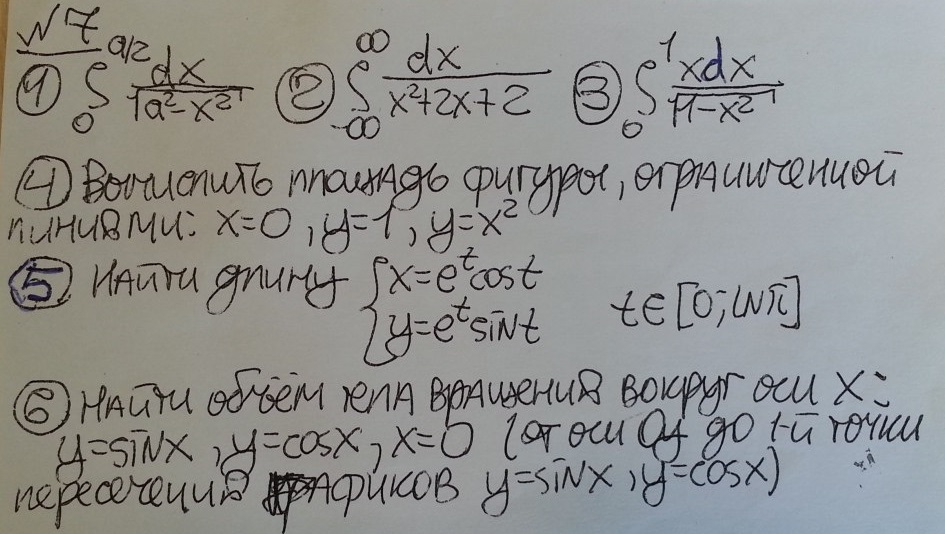 №7
① ∫₀^{a/2} dx/√(a²-x²) ② ∫_{-∞}^{∞} dx/(x²+2x+2) ③ ∫₀¹ xdx/√(1-x²)
④ Вычислить площадь фигуры, ограниченной
линиями: x=0, y=1, y=x²
⑤ Найти длину {x=e^t cost
{y=e^t sint t∈[0; lnπ]
⑥ Найти объём тела вращения вокруг оси X:
y=sinx, y=cosx, x=0 (от оси Oy до 1-й точки
пересечения графиков y=sinx, y=cosx)